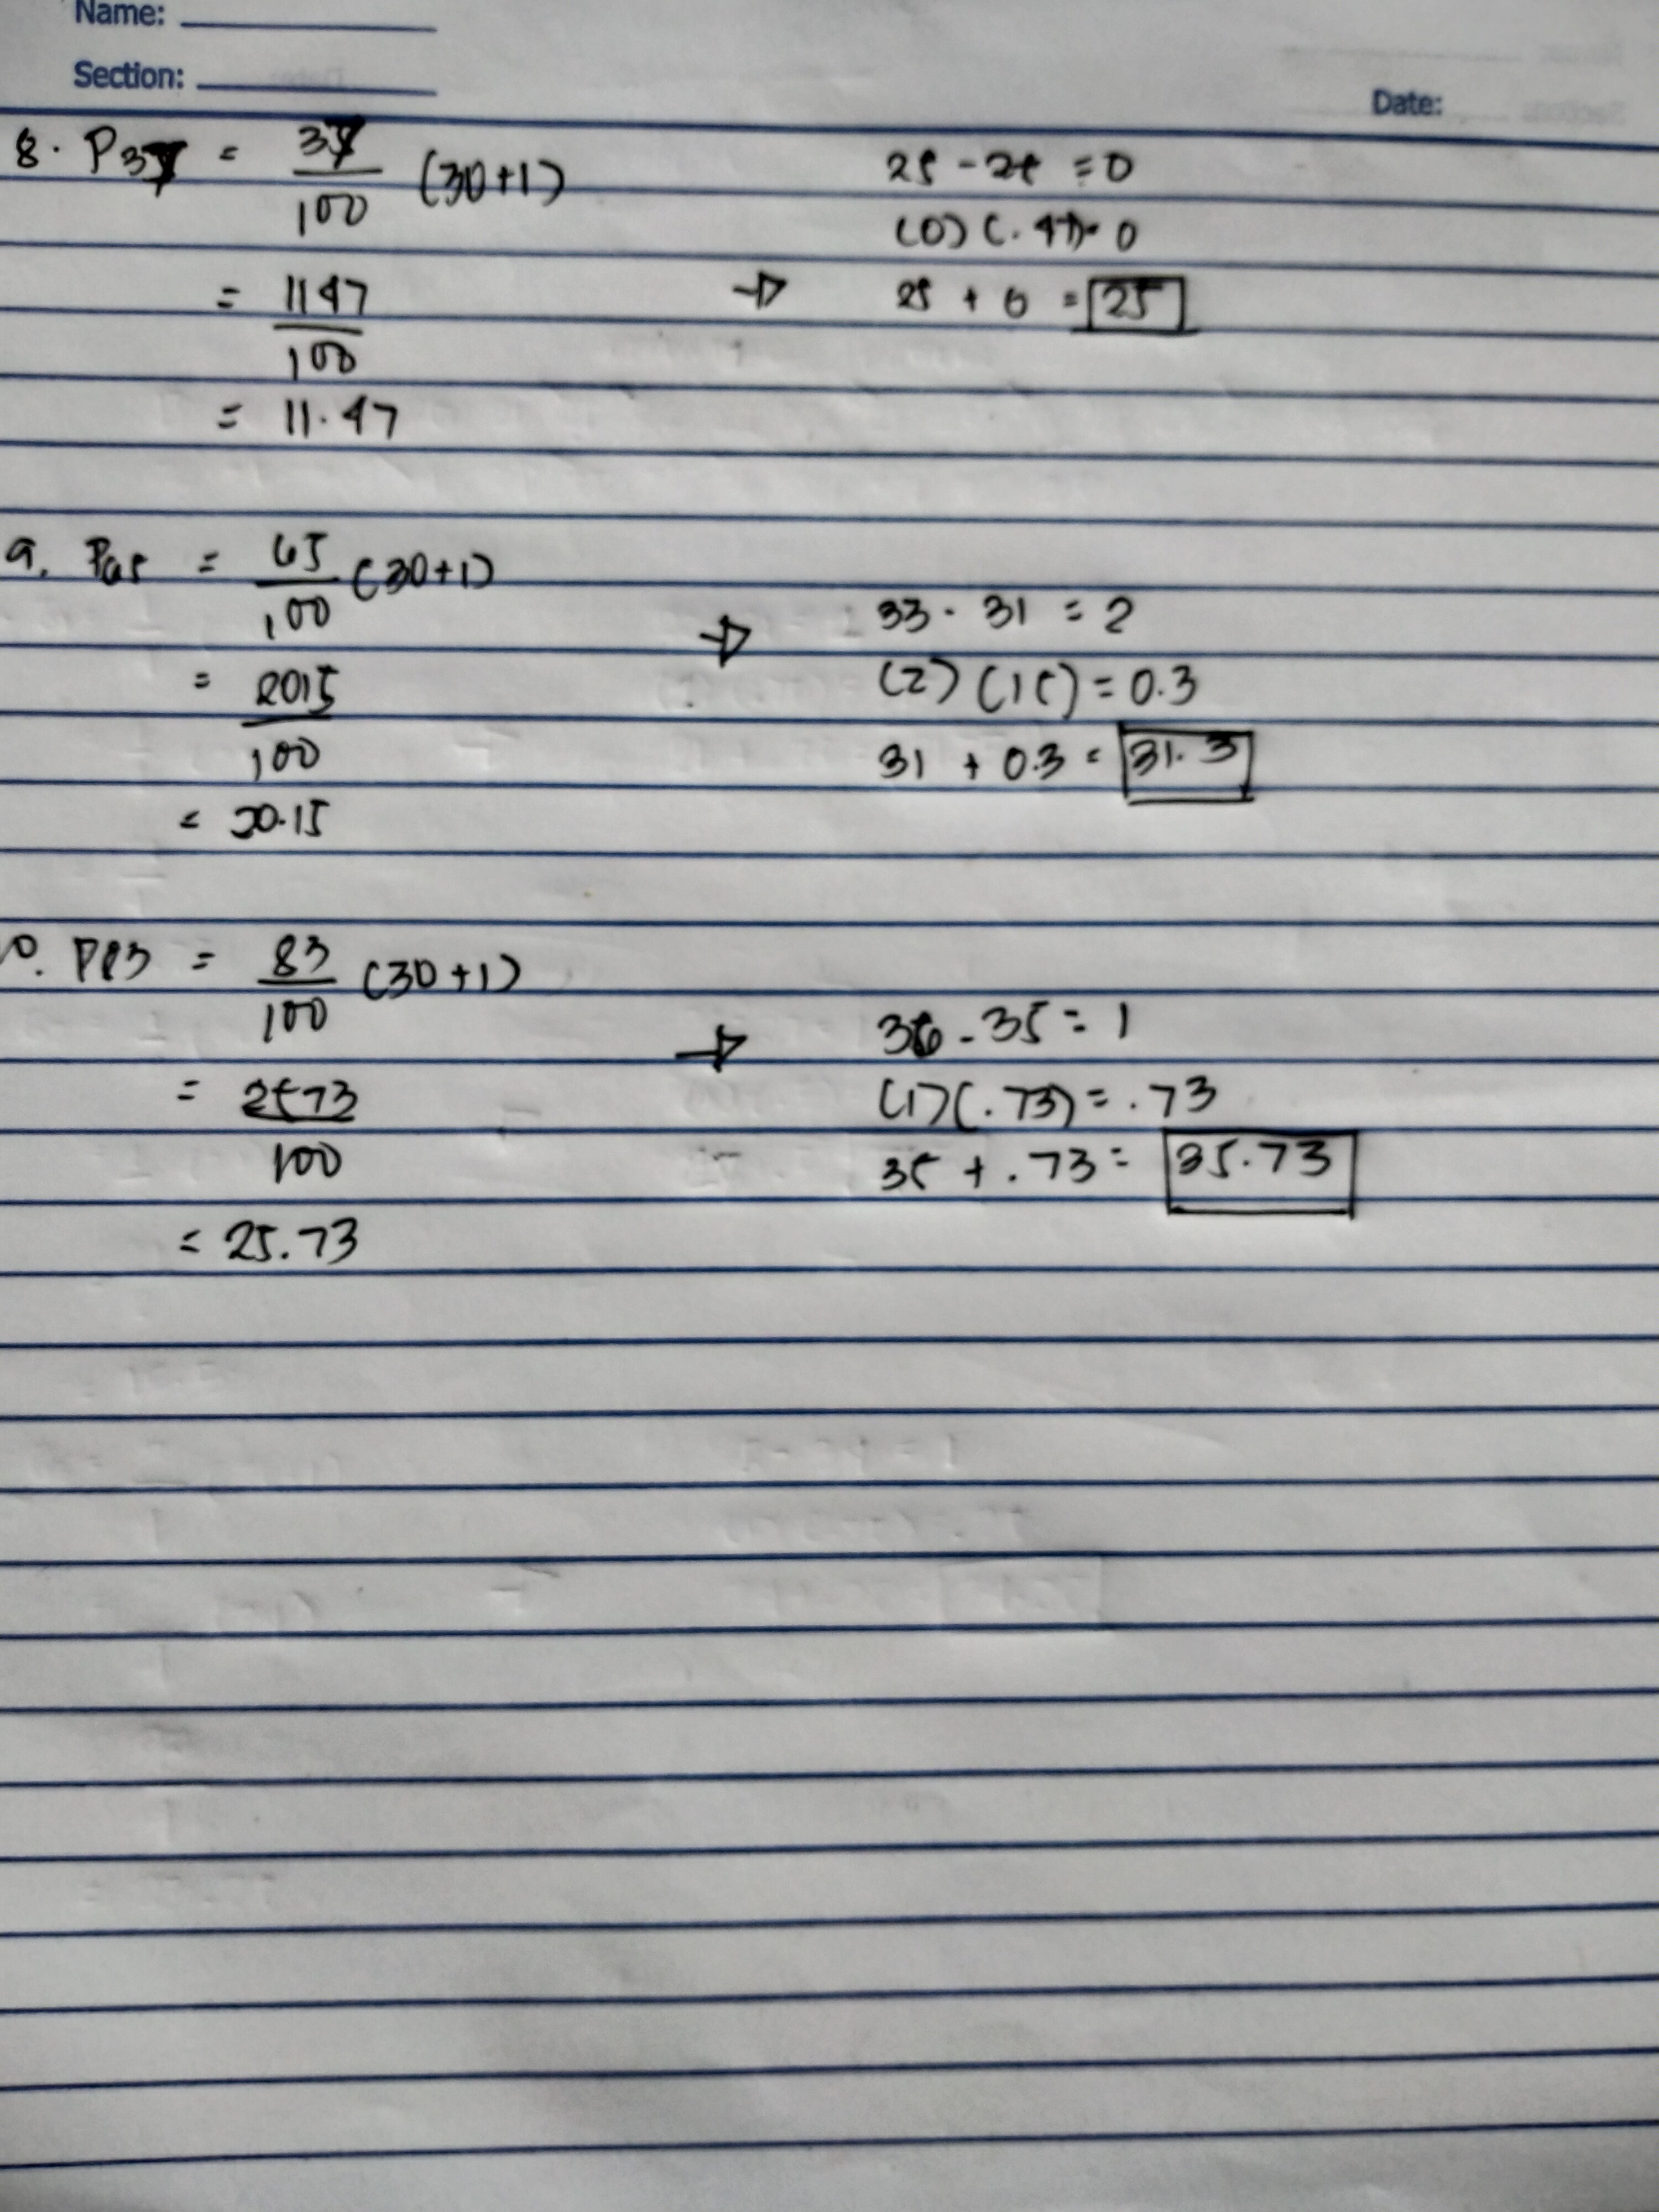 Name:
Section:
Date:
8. P37 = 37/100 (30+1)
= 1147/100
= 11.47
→ 25 - 25 = 0
(0) (.47) = 0
25 + 0 = 25
9. P65 = 65/100 (30+1)
= 2015/100
= 20.15
→ 33 - 31 = 2
(2) (15) = 0.3
31 + 0.3 = 31.3
10. P83 = 83/100 (30+1)
= 2573/100
= 25.73
→ 36 - 35 = 1
(1) (.73) = .73
35 + .73 = 35.73